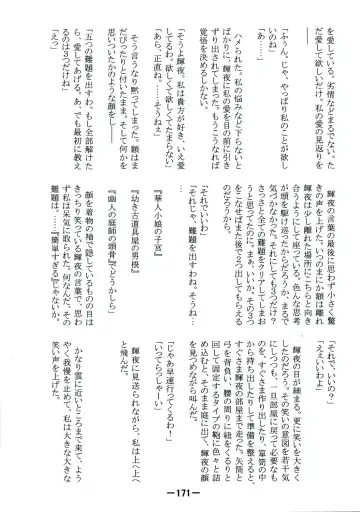 を愛している。劣情などまるでない。た
だ愛して欲しいだけ。私の愛の見返りを
「ふぅん。じゃ、やっぱり私のことが欲し
いのね」
「あっ」
ハメられた。私の悩みなど下らないと
ばかりに、輝夜に私の愛を目の前に引き
ずり出されてしまった。もうこうなれば
覚悟を決めるしかない。
「そうよ輝夜。私は貴方が好き、いえ愛
してるわ。欲しくて欲しくてたまらない」
「あら、正直ね。……そうねぇ」
そう言うなり黙ってしまった。額はま
だぴったりと付いたまま。そして何かを
思いついたかのような顔を──
「五つの難題を出すわ。もし全部解けた
ら、愛してあげる。あ、でも最初に教え
るのは3つだけね」
「えっ」
輝夜の言葉の最後に思わず小さく驚
きの声を上げた。いつのまにか額は離れ
輝夜は少し離れた場所にこちらと向き
合うようにして座っている。色んな思考
が頭を駆け巡ったからだろうか、まるで
気づかなかった。それにしても3つだけ?
さっさと全ての難題をクリアしてしまお
うと思ってたのに。まあ、いいか。その3つ
をこなせばまた後で2つ出してもらえる
のだろうから。
「それでいいわ」
「それじゃ、難題を出すわね。そうね…
『華人小娘の子宮』
『幼き古道具屋の男根』
『幽人の庭師の頭骨』でどうかしら」
顔を着物の袖で隠しているものの目は
きっちり笑っている輝夜の言葉で、思わ
ず私は呆気に取られた。何なんだ、その
難題は……『簡単すぎる』じゃないか。
「それで、いいの?」
「ええいいわよ」
輝夜の目が緩まる。更に笑いを大きく
したのだろう。その笑いの意図を若干気
にしつつも、一旦部屋に戻って必要なも
のを、すぐさま作り出したり、箪笥の中
から持ち出したりして準備を整えると、
すぐさま輝夜の部屋まで戻った。矢筒と
弓を背負い、腰の周りに紐をくるりと
回して固定するタイプの鞄に色々と詰
め込むと、そのまま庭に出て、輝夜の顔
を見つめながら飛び立つ。
「じゃあ早速行ってくるわ!」
「いってらっしゃーい」
輝夜に見送られながら、私は上へ上へ
と飛んだ。
かなり雲に近いところまで来て、よう
やく我慢を止めて、私は大きな大きな
笑い声を上げた。
―171―